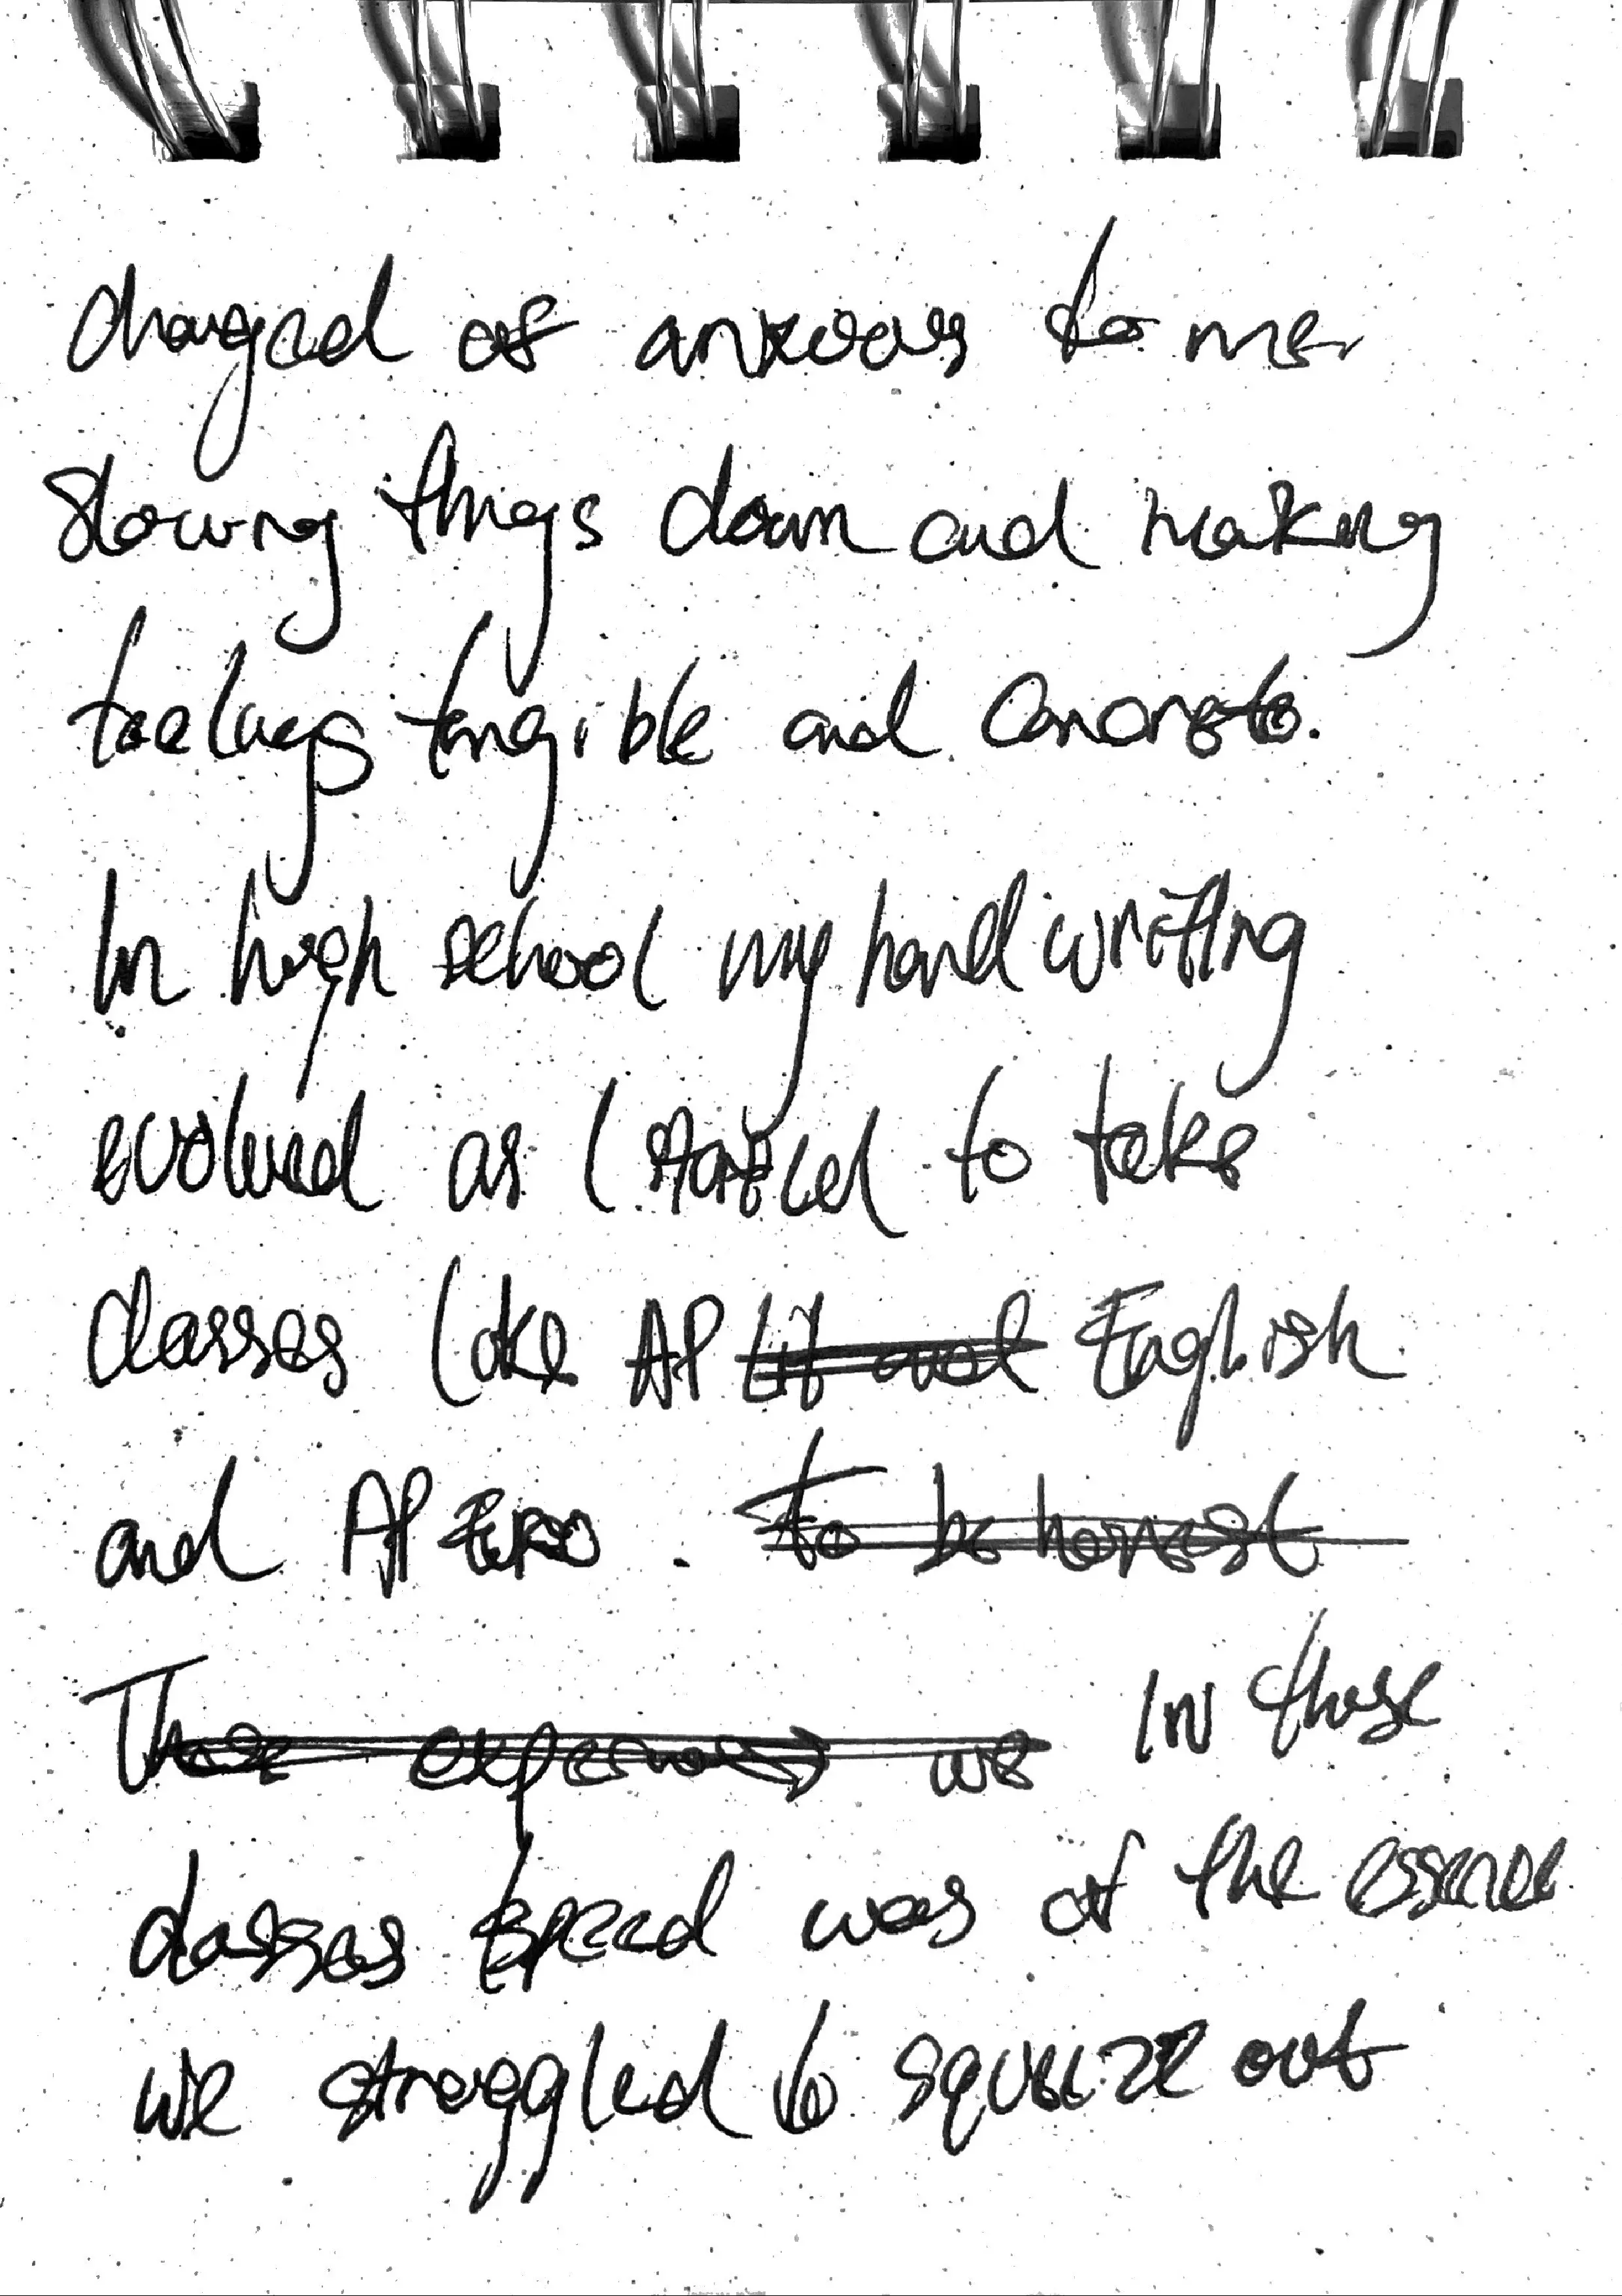 charged of anxious to me
slowing things down and making
feelings tangible and concrete.
In high school my handwriting
evolved as I started to take
classes like AP Lit and English
and AP Euro. To be honest
These we In those
classes speed was of the essence
we struggled to squeeze out